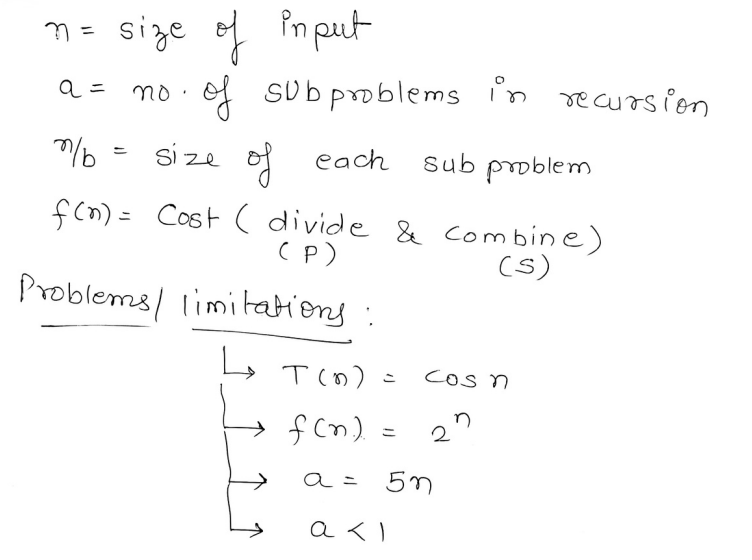 n = size of input
a = no. of subproblems in recursion
n/b = size of each subproblem
f(n) = Cost ( divide & combine)
(P) (S)
Problems/ limitations :
↳ T(n) = cos n
→ f(n) = 2ⁿ
→ a = 5n
↳ a < 1